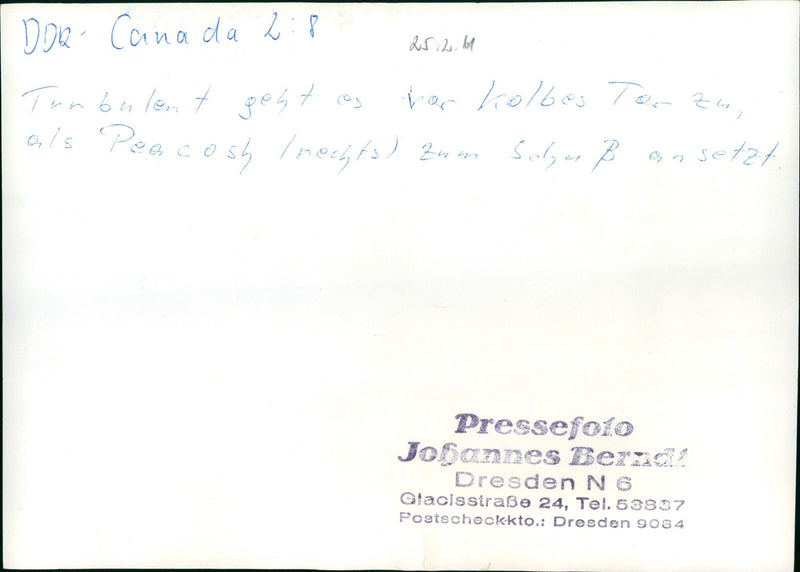 DDR - Canada 2:8
25.2.61
Turbulent geht es vor Kolbes Tor zu,
als Peacosh (rechts) zum Schuß ansetzt.
Pressefoto
Johannes Berndt
Dresden N 6
Glacisstraße 24, Tel. 53837
Postscheckkto.: Dresden 9084